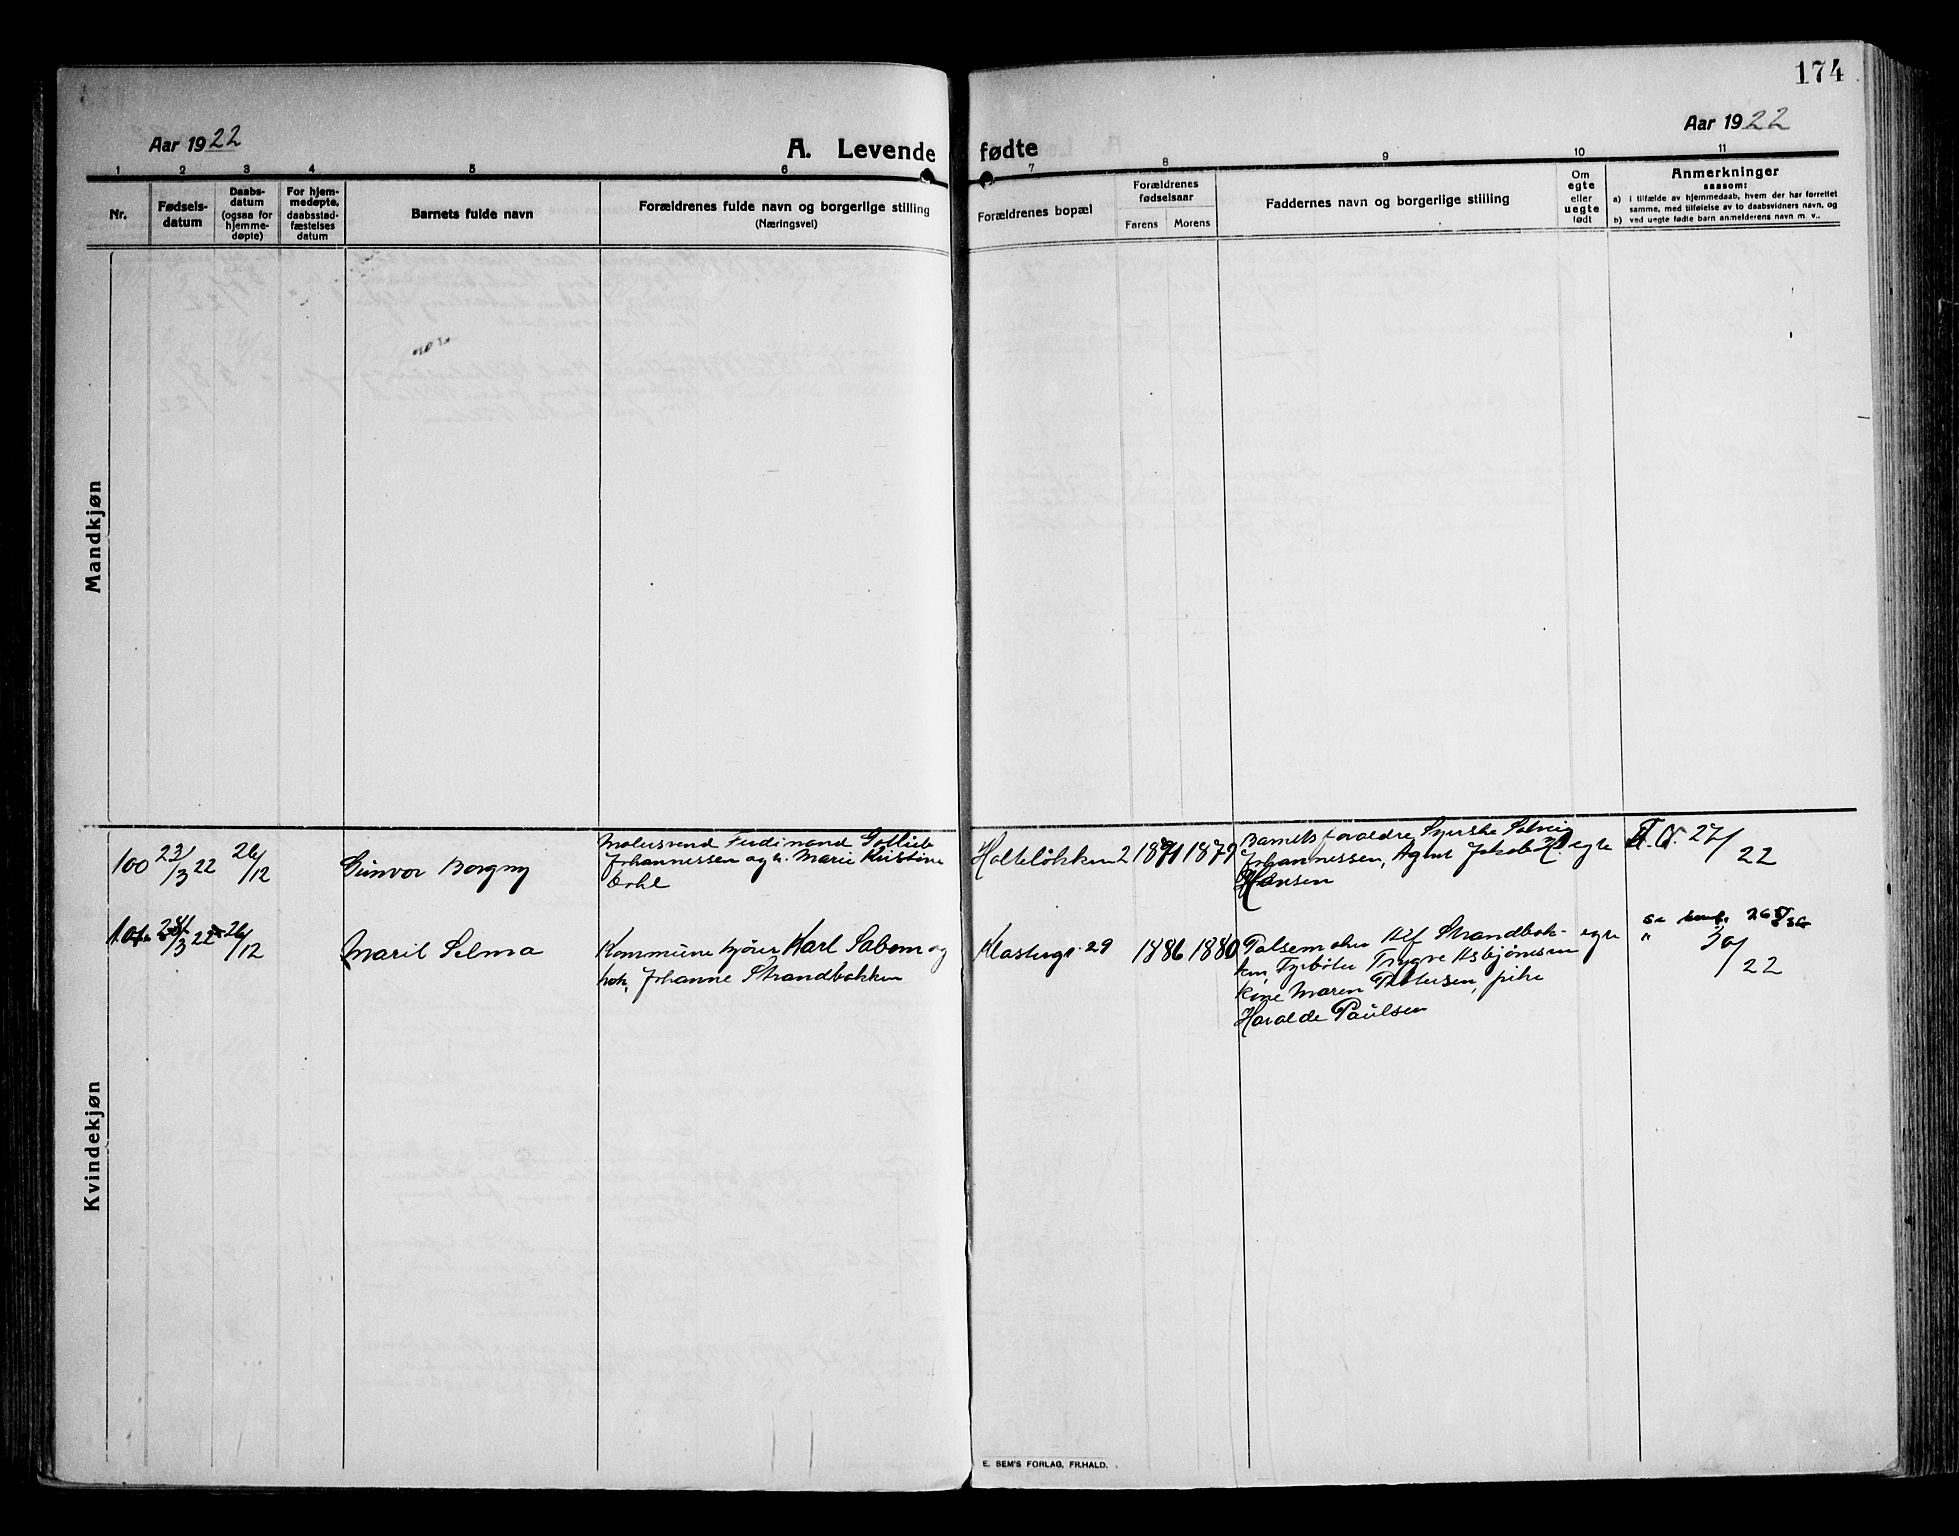 174
Aar 1922
A. Levende fødte
Aar 1922
1 2 3 4 5 6 7 8 9 10 11
Nr.
Fødsels-
datum
Daabs-
datum
(ogsaa for
hjemme-
døpte)
For hjem-
medøpte,
daabsstad-
fæstelses
datum
Barnets fulde navn
Forældrenes fulde navn og borgerlige stilling
(Næringsvei)
Forældrenes bopæl
Forældrenes
fødselsaar
Farens Morens
Faddernes navn og borgerlige stilling
Om
egte
eller
uegte
født
Anmerkninger
saasom:
a) i tilfælde av hjemmedaab, hvem der har forrettet
samme, med tilføielse av to daabsvidners navn, og
b) ved uegte fødte barn anmelderens navn m. v..
Mandkjøn
Kvindekjøn
100
23/3 22
26/12
Gunvor Borgny
Malersvend Ferdinand Gotlieb
Johannessen og h. Marie Kristine
Holteløkken 2
1871
1879
Barnets foraldre, Syerske Solvei
Johannessen, Agent Jakob
Hansen
egte
27/22
101
3 22
26/12
Marit Selma
Kommune kjører Karl Sabem og
h. Johanne Strandbakken
Klosterg. 29
1886
1880
Pølsemaker Alf Strandbak-
ken Fyrbøter Trygve Asbjørnsen
kone Maren Pettersen, pike
Haralde Paulsen
egte
30/22
E. SEM'S FORLAG, FR.HALD.